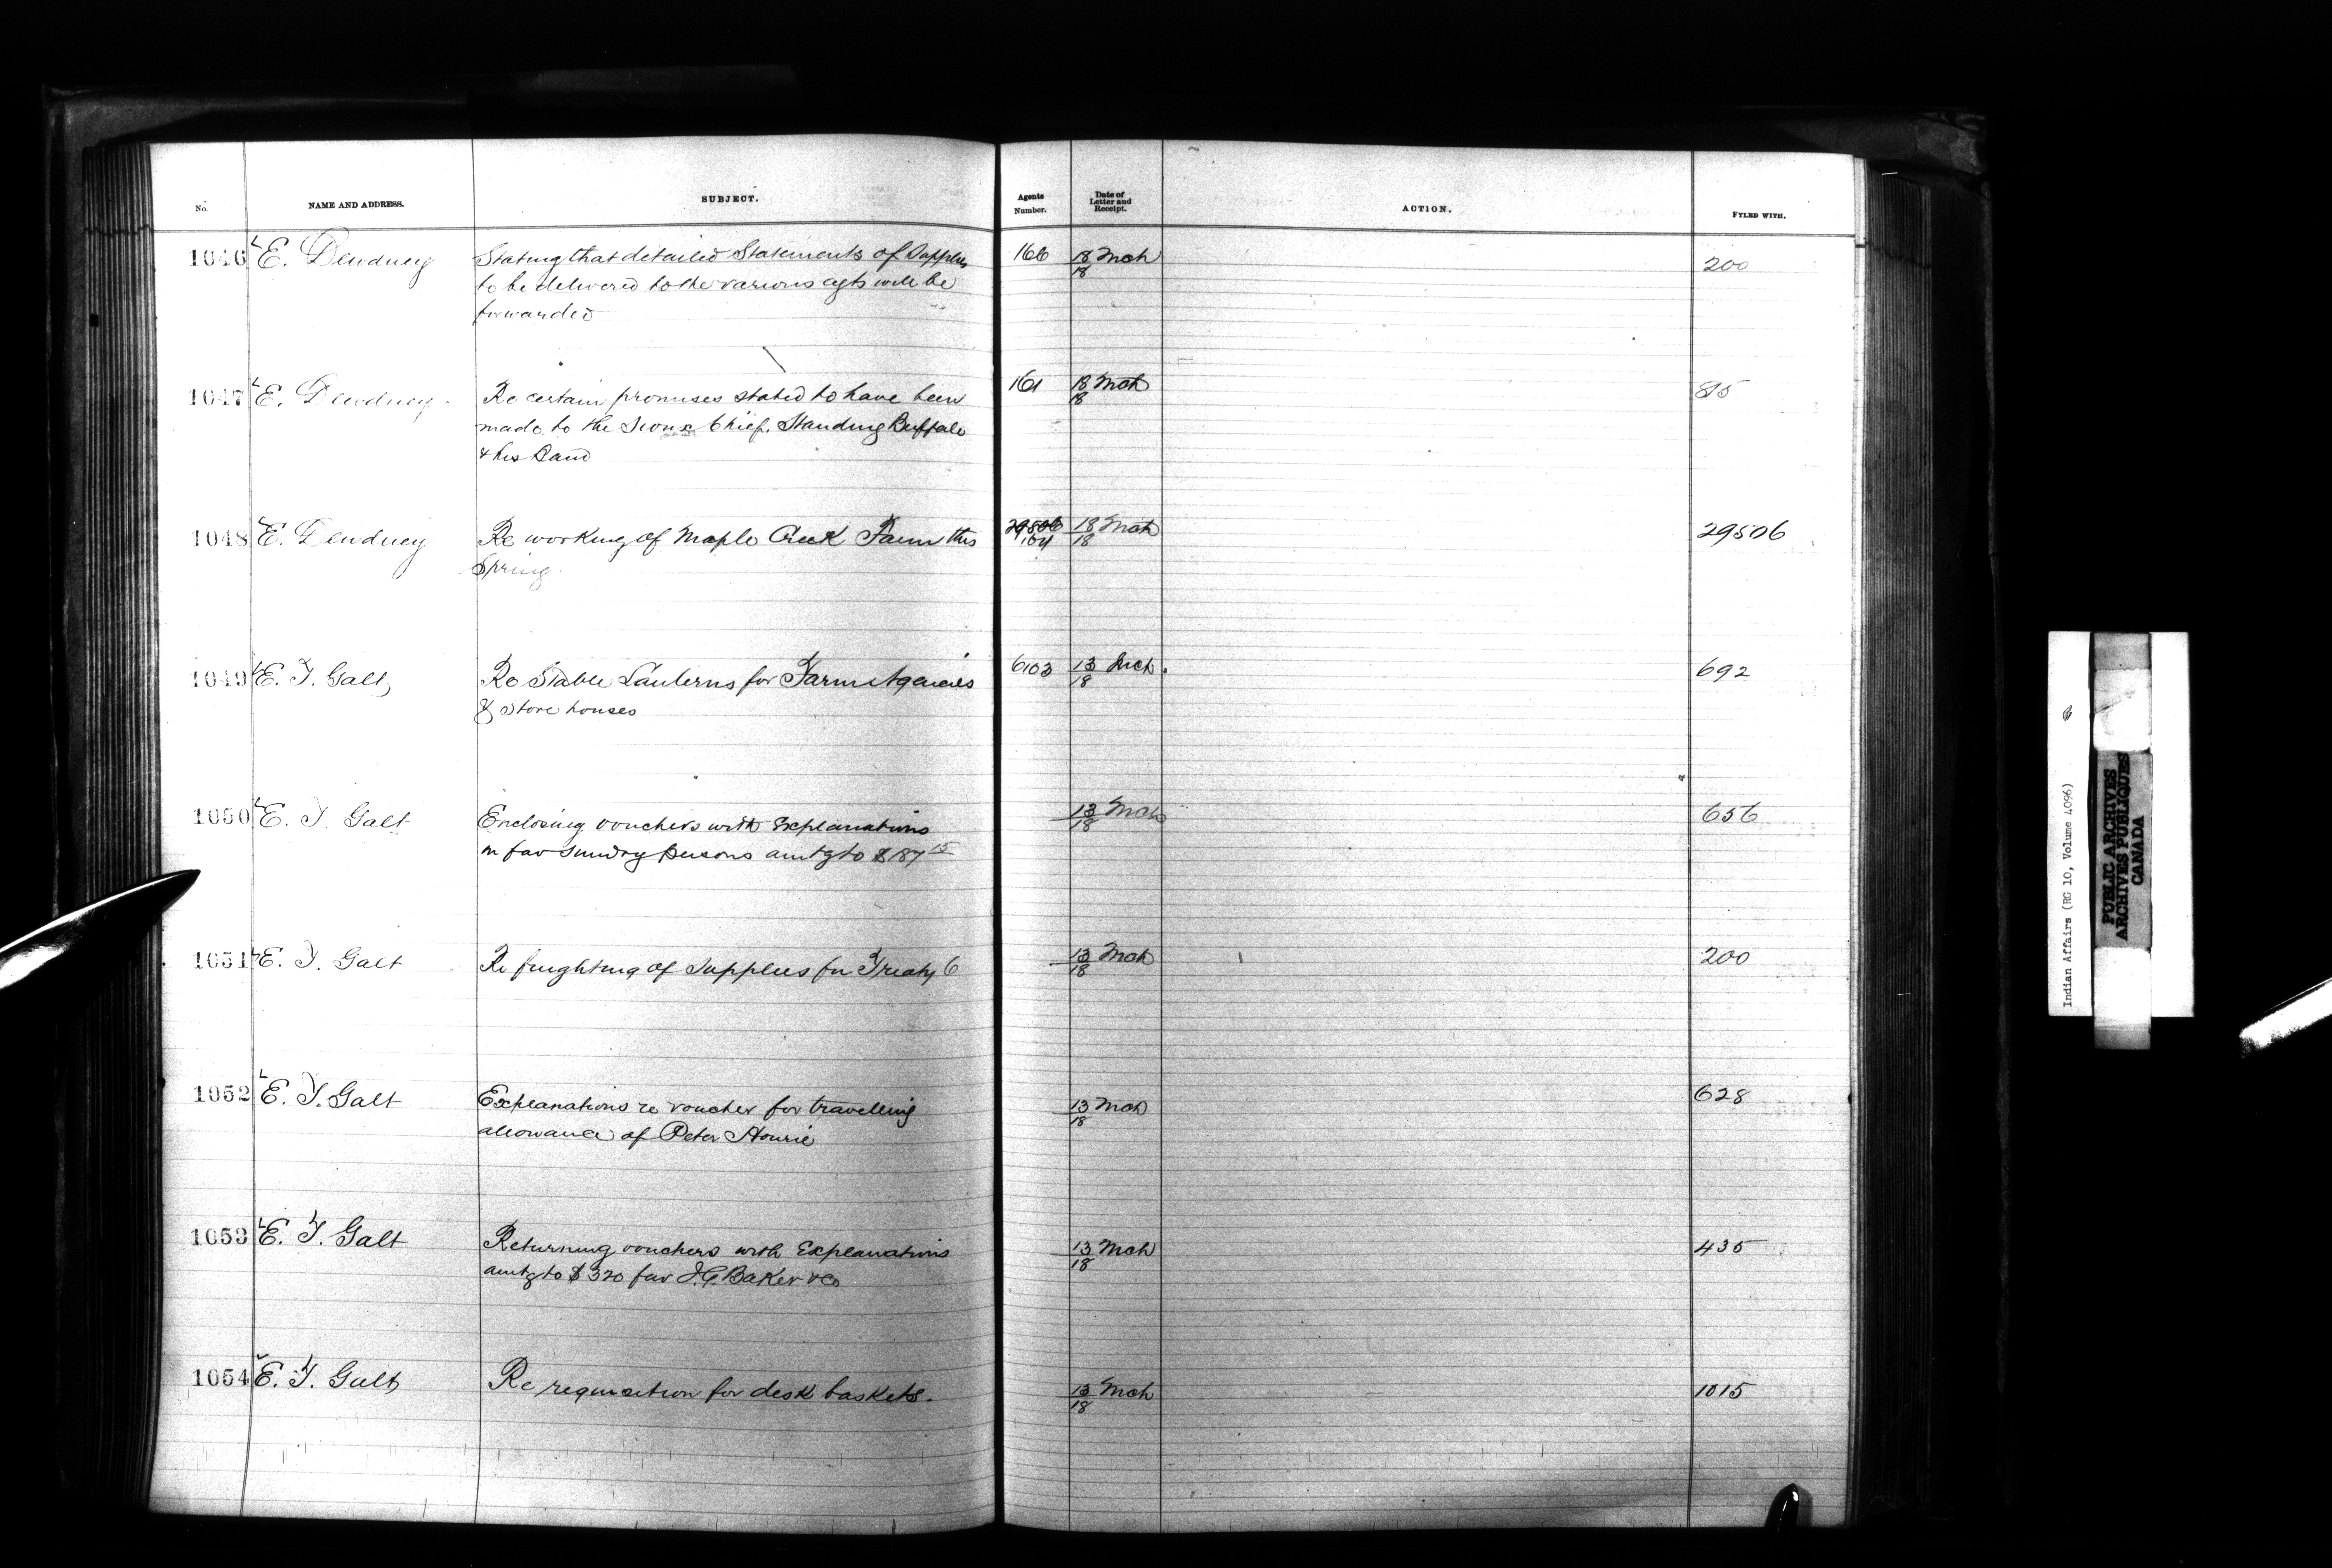 No. NAME AND ADDRESS. SUBJECT. Agents Number. Date of Letter and Receipt. ACTION. FYLED WITH.
1046 E. Dewdney Stating that detailed Statements of Supplies 166 18 Mch 200
to be delivered to the various agts will be 18
forwarded
1047 E. Dewdney Re certain promises stated to have been 161 18 Mch 815
made to the Sioux Chief. Standing Buffalo 18
& his Band
1048 E. Dewdney Re working of Maple Creek Farm this 29506 18 Mch 29506
Spring 164 18
1049 E. T. Galt Re Stable Lanterns for Farm Agencies 6103 13 Mch. 692
& Store houses 18
1050 E. T. Galt Enclosing vouchers with Explanations 13 Mch 656
in fav sundry persons amtg to $187 15 18
1051 E. T. Galt Re freighting of Supplies for Treaty 6 13 Mch 200
18
1052 E. T. Galt Explanations re voucher for travelling 13 Mch 628
allowance of Peter Hourie 18
1053 E. T. Galt Returning vouchers with Explanations 13 Mch 435
amtg to $320 fav I. G. Baker & Co 18
1054 E. T. Galt Re requisition for desk baskets. 13 Mch 1015
18
Indian Affairs (RG 10, Volume 4096)
PUBLIC ARCHIVES
ARCHIVES PUBLIQUES
CANADA